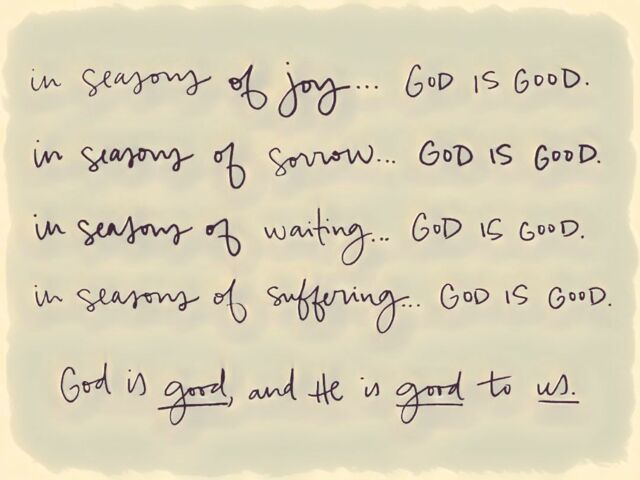 in seasons of joy... GOD IS GOOD.
in seasons of sorrow... GOD IS GOOD.
in seasons of waiting... GOD IS GOOD.
in seasons of suffering... GOD IS GOOD.
God is good, and He is good to us.